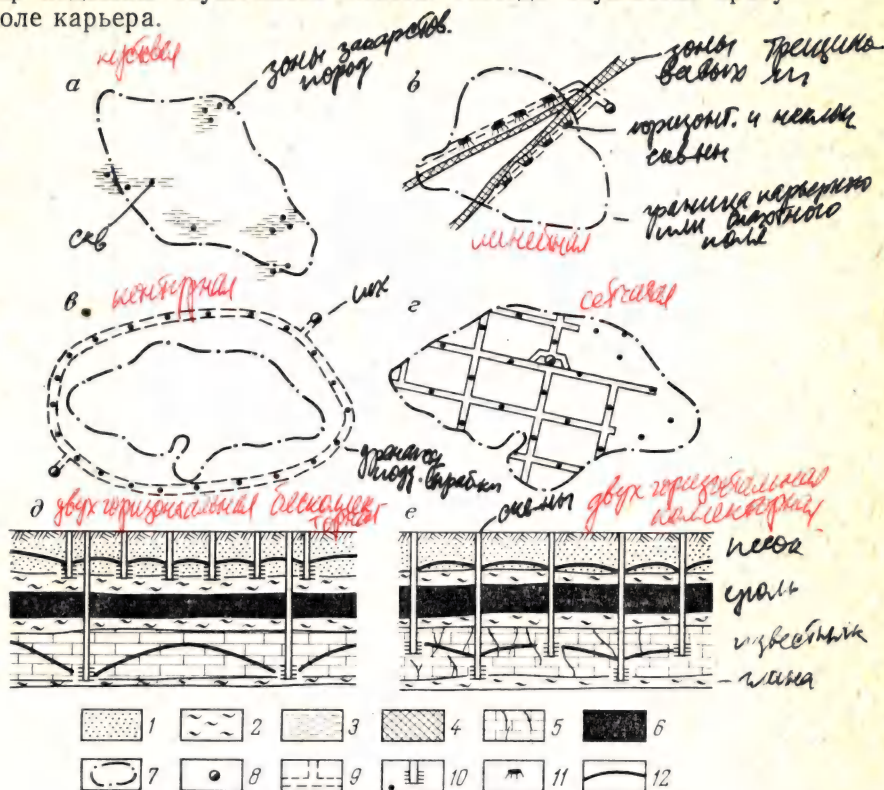 оле карьера.
а
кустовая
зоны закарстов.
пород
скв
б
зоны трещино-
ватых
горизонт. и наклон
скв-ны
граница карьерного
или шахтного
поля
линейная
в
контурная
шх
дренажн
подз. выработки
г
сетчатая
д двухгоризонтальная бесколлек
торная
скв-ны
е двухгоризонтальная
коллекторная
песок
уголь
известняк
- глина
1 2 3 4 5 6
7 8 9 10 11 12